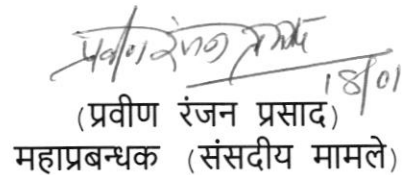 प्रवीण रंजन प्रसाद
18/01
(प्रवीण रंजन प्रसाद)
महाप्रबन्धक (संसदीय मामले)